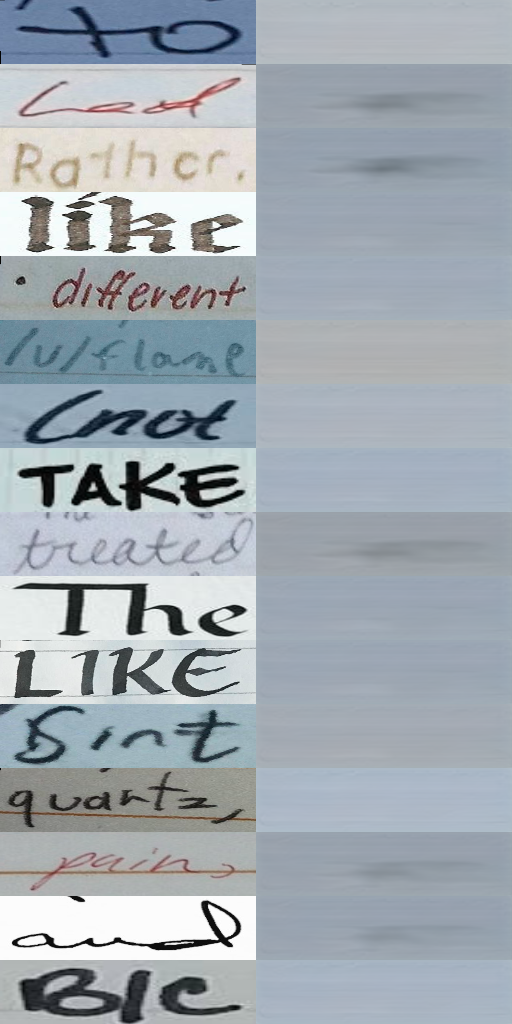 to
Lead
Rather.
like
• different
/v/flame
(not
TAKE
treated
The
LIKE
quartz,
pain,
and
B/c